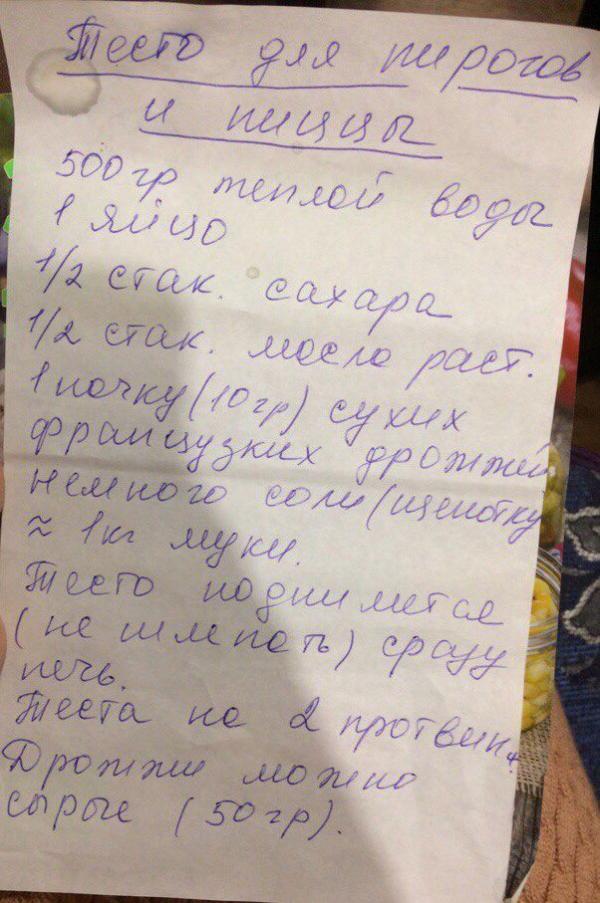 Тесто для пирогов
и пиццы
500гр теплой воды
1 яйцо
1/2 стак. сахара
1/2 стак. масла раст.
1 пачку (10гр) сухих
французких дрожжей
немного соли (щепотку
≈ 1кг муки.
Тесто поднимется
(не шлепать) сразу
печь.
Теста на 2 противня.
Дрожжи можно
сырые (50гр).